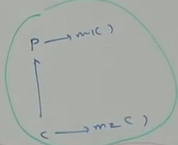 P → m1( )
C → m2( )